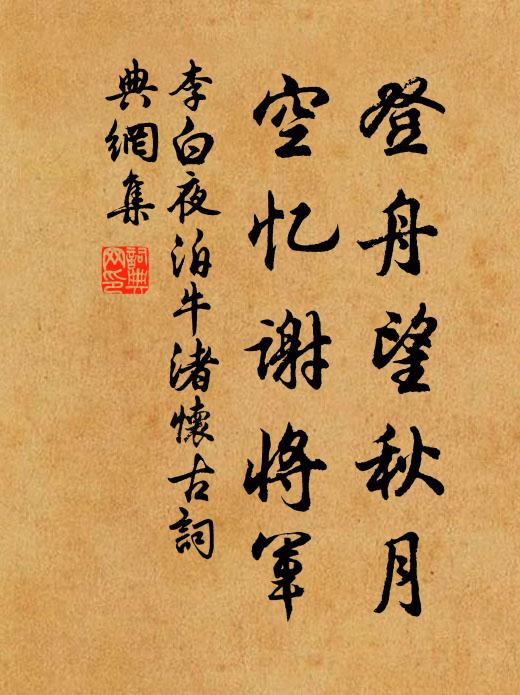 登舟望秋月
空忆谢将军
李白夜泊牛渚懷古詞
典網集
詞典
网印